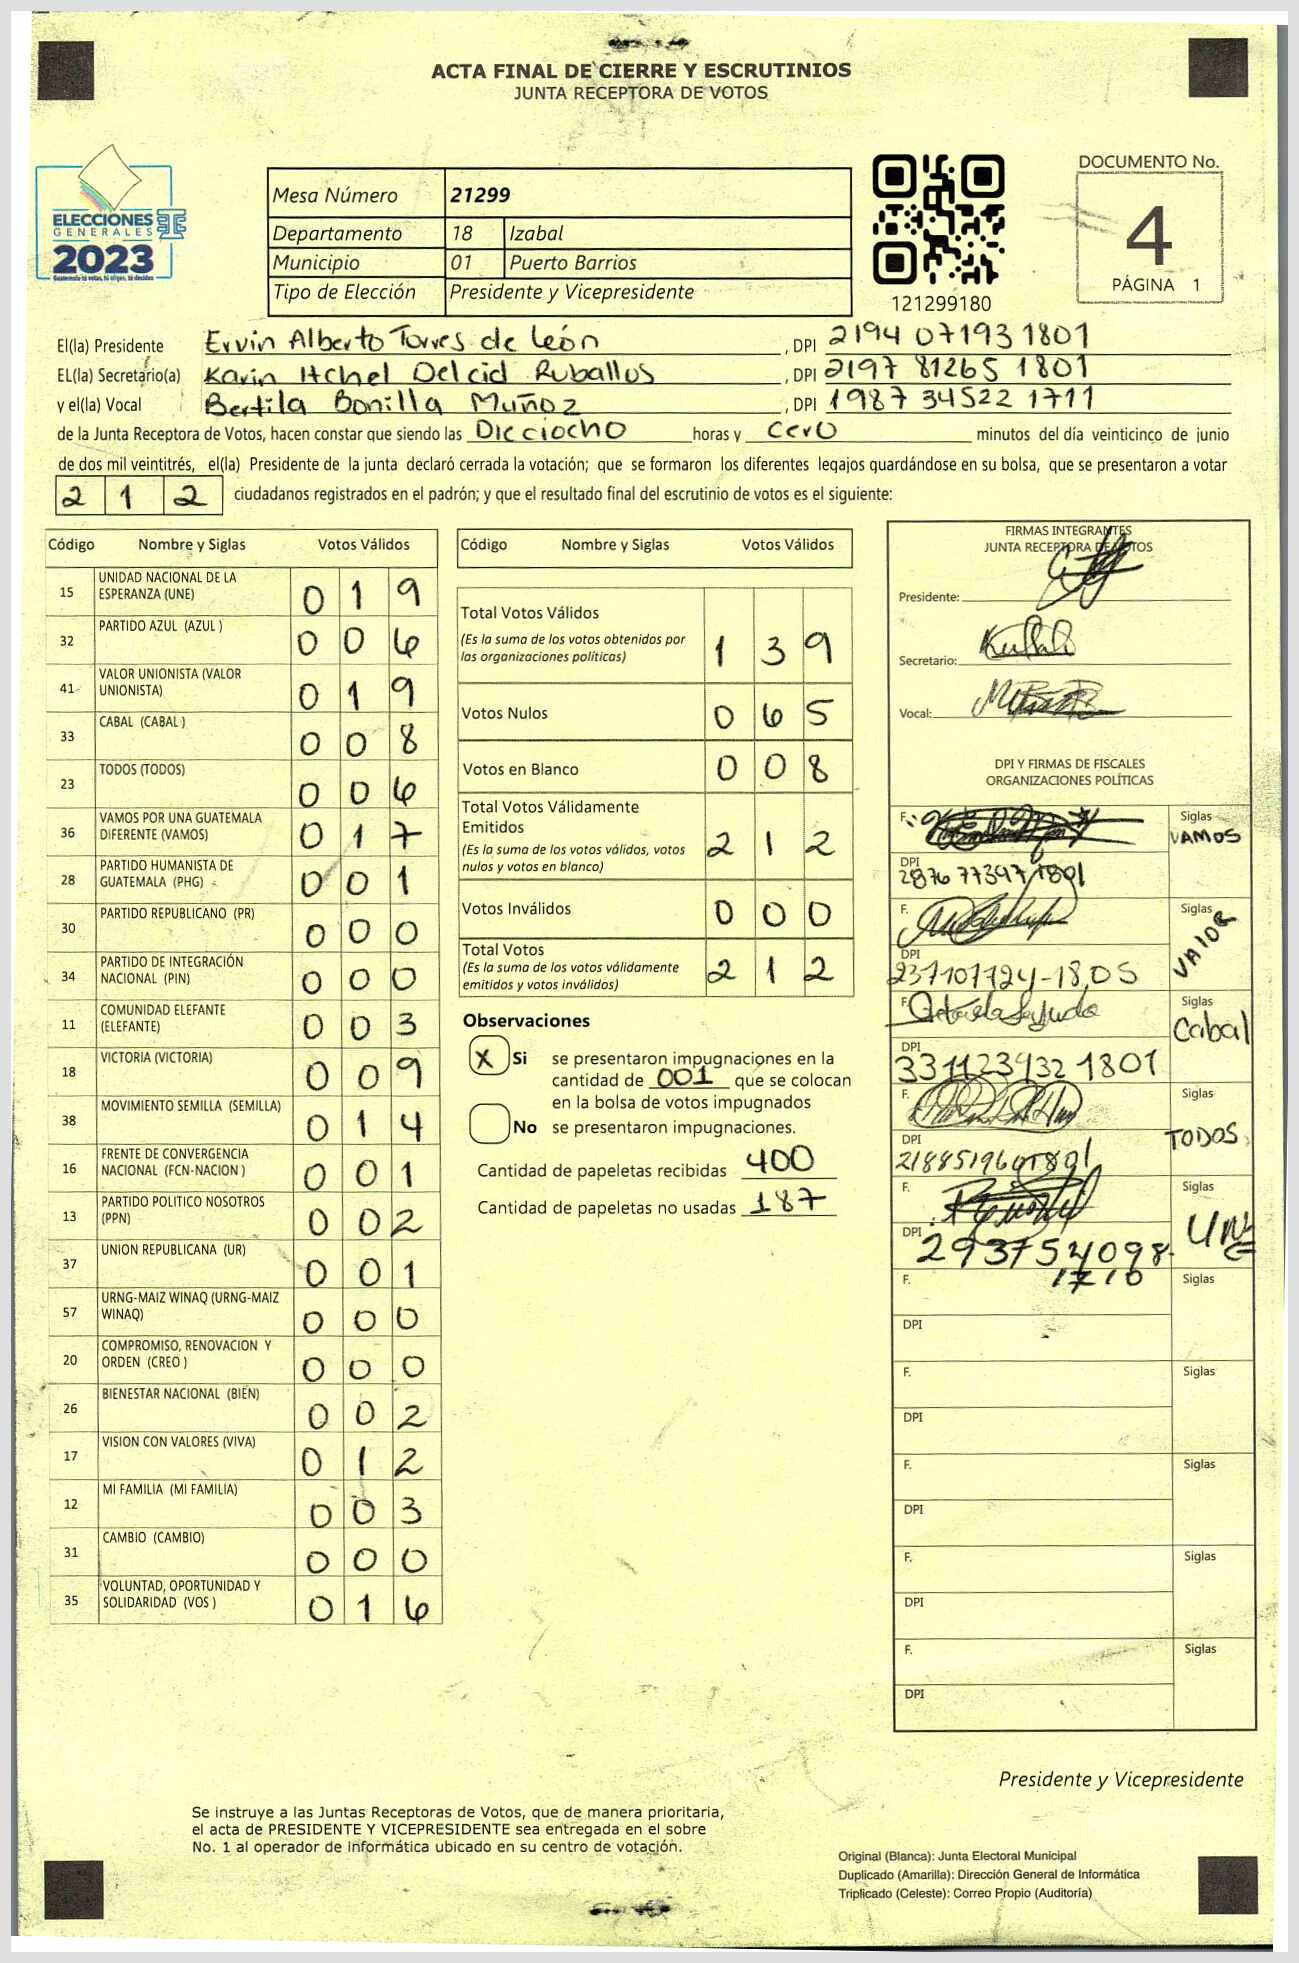 ACTA FINAL DE CIERRE Y ESCRUTINIOS
JUNTA RECEPTORA DE VOTOS
ELECCIONES
GENERALES
2023
Guatemala tú votas, tú eliges, tú decides
Mesa Número 21299
Departamento 18 Izabal
Municipio 01 Puerto Barrios
Tipo de Elección Presidente y Vicepresidente
121299180
DOCUMENTO No.
4
PÁGINA 1
El(la) Presidente Ervin Alberto Torres de León , DPI 2194 07193 1801
EL(la) Secretario(a) Karin Itchel Delcid Ruballos , DPI 2197 81265 1801
y el(la) Vocal Bertila Bonilla Muñoz , DPI 1987 34522 1711
de la Junta Receptora de Votos, hacen constar que siendo las Dieciocho horas y cero minutos del día veinticinco de junio
de dos mil veintitrés, el(la) Presidente de la junta declaró cerrada la votación; que se formaron los diferentes legajos guardándose en su bolsa, que se presentaron a votar
2 1 2 ciudadanos registrados en el padrón; y que el resultado final del escrutinio de votos es el siguiente:
Código Nombre y Siglas Votos Válidos
15 UNIDAD NACIONAL DE LA
ESPERANZA (UNE) 0 1 9
32 PARTIDO AZUL (AZUL ) 0 0 6
41 VALOR UNIONISTA (VALOR
UNIONISTA) 0 1 9
33 CABAL (CABAL ) 0 0 8
23 TODOS (TODOS) 0 0 6
36 VAMOS POR UNA GUATEMALA
DIFERENTE (VAMOS) 0 1 7
28 PARTIDO HUMANISTA DE
GUATEMALA (PHG) 0 0 1
30 PARTIDO REPUBLICANO (PR) 0 0 0
34 PARTIDO DE INTEGRACIÓN
NACIONAL (PIN) 0 0 0
11 COMUNIDAD ELEFANTE
(ELEFANTE) 0 0 3
18 VICTORIA (VICTORIA) 0 0 9
38 MOVIMIENTO SEMILLA (SEMILLA) 0 1 4
16 FRENTE DE CONVERGENCIA
NACIONAL (FCN-NACION ) 0 0 1
13 PARTIDO POLITICO NOSOTROS
(PPN) 0 0 2
37 UNION REPUBLICANA (UR) 0 0 1
57 URNG-MAIZ WINAQ (URNG-MAIZ
WINAQ) 0 0 0
20 COMPROMISO, RENOVACION Y
ORDEN (CREO ) 0 0 0
26 BIENESTAR NACIONAL (BIEN) 0 0 2
17 VISION CON VALORES (VIVA) 0 1 2
12 MI FAMILIA (MI FAMILIA) 0 0 3
31 CAMBIO (CAMBIO) 0 0 0
35 VOLUNTAD, OPORTUNIDAD Y
SOLIDARIDAD (VOS ) 0 1 6
Código Nombre y Siglas Votos Válidos
Total Votos Válidos
(Es la suma de los votos obtenidos por
las organizaciones políticas) 1 3 9
Votos Nulos 0 6 5
Votos en Blanco 0 0 8
Total Votos Válidamente
Emitidos
(Es la suma de los votos válidos, votos
nulos y votos en blanco) 2 1 2
Votos Inválidos 0 0 0
Total Votos
(Es la suma de los votos válidamente
emitidos y votos inválidos) 2 1 2
Observaciones
X Si se presentaron impugnaciones en la
cantidad de 001 que se colocan
en la bolsa de votos impugnados
No se presentaron impugnaciones.
Cantidad de papeletas recibidas 400
Cantidad de papeletas no usadas 187
FIRMAS INTEGRANTES
JUNTA RECEPTORA DE VOTOS
Presidente:
Secretario:
Vocal:
DPI Y FIRMAS DE FISCALES
ORGANIZACIONES POLÍTICAS
F. Siglas VAMOS
DPI
2876 77397 1801
F. Siglas VALOR
DPI
F. Siglas Cabal
DPI
331123932 1801
F. Siglas TODOS
DPI
F. Siglas UNE
DPI 293754098
1710
F. Siglas
DPI
F. Siglas
DPI
F. Siglas
DPI
F. Siglas
DPI
F. Siglas
DPI
Presidente y Vicepresidente
Se instruye a las Juntas Receptoras de Votos, que de manera prioritaria,
el acta de PRESIDENTE Y VICEPRESIDENTE sea entregada en el sobre
No. 1 al operador de informática ubicado en su centro de votación.
Original (Blanca): Junta Electoral Municipal
Duplicado (Amarilla): Dirección General de Informática
Triplicado (Celeste): Correo Propio (Auditoría)